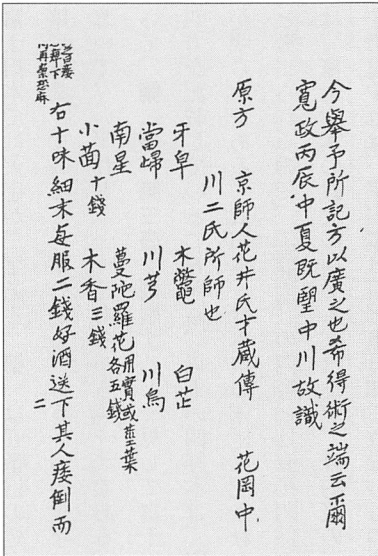 今舉予所記方以廣之也希得術之端云爾
寬政丙辰中夏既望中川故識
原方 京師人花井氏才蔵傳 花岡中
川二氏所師也
牙皁 木鼈 白芷
當歸 川芎 川烏
南星 蔓陀羅花各五錢用實或莖葉
小茴十錢 木香三錢
右十味細末每服二錢好酒送下其人痿倒而
二